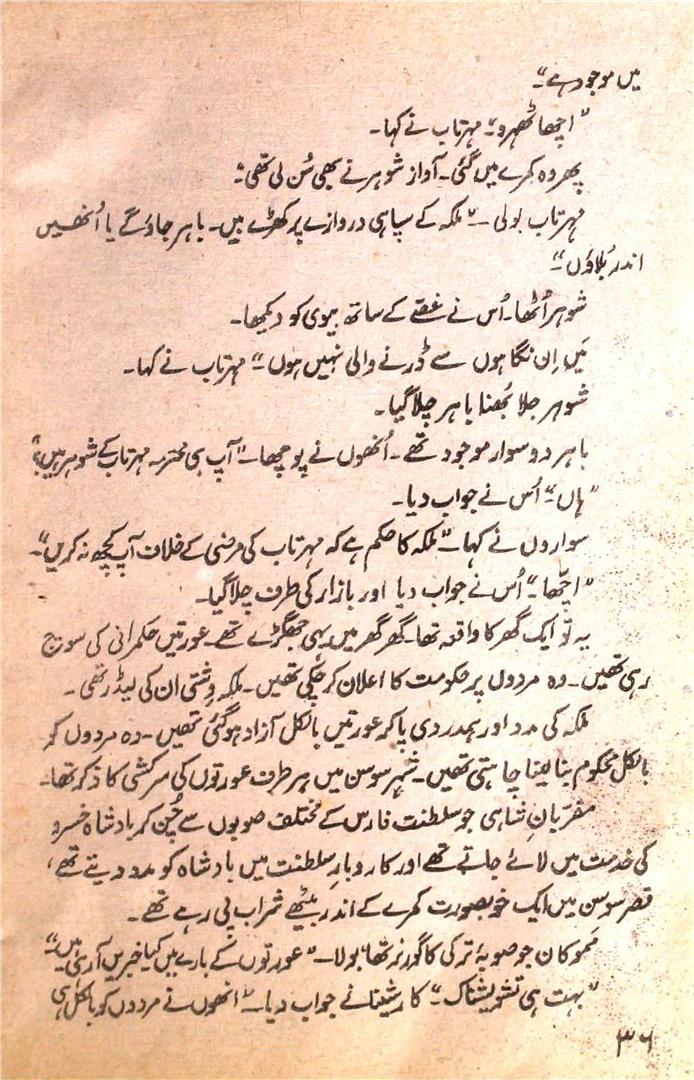 میں موجود ہے"۔
"اچھا ٹھہرو"۔ مہرتاب نے کہا۔
پھر وہ کمرے میں گئی۔ آواز شوہر نے بھی سُن لی تھی"۔
مہرتاب بولی۔ "ملکہ کے سپاہی دروازے پر کھڑے ہیں۔ باہر جاؤ گے یا اُنھیں
اندر بُلاؤں"۔
شوہر اُٹھا۔ اُس نے غصّے کے ساتھ بیوی کو دیکھا۔
مَیں اِن نگاہوں سے ڈرنے والی نہیں ہوں"۔ مہرتاب نے کہا۔
شوہر جلا بُھنا باہر چلا گیا۔
باہر دو سوار موجود تھے۔ اُنھوں نے پوچھا۔ "آپ ہی محترمہ مہرتاب کے شوہر ہیں؟"
"ہاں"۔ اُس نے جواب دیا۔
سواروں نے کہا۔ "ملکہ کا حکم ہے کہ مہرتاب کی مرضی کے خلاف آپ کچھ نہ کریں"۔
"اچّھا"۔ اُس نے جواب دیا اور بازار کی طرف چلا گیا۔
یہ تو ایک گھر کا واقعہ تھا۔ گھر گھر میں یہی جھگڑے تھے۔ عورتیں حکمرانی کی سوچ
رہی تھیں۔ وہ مردوں پر حکومت کا اعلان کر چُکی تھیں۔ ملکہ وِشتی ان کی لیڈر تھی۔
ملکہ کی مدد اور ہمدردی پا کر عورتیں بالکل آزاد ہو گئی تھیں۔ وہ مردوں کو
بالکل محکوم بنا لینا چاہتی تھیں۔ شہر سوسن میں ہر طرف عورتوں کی سرکشی کا ذکر تھا۔
مقرّبانِ شاہی جو سلطنت فارس کے مختلف صوبوں سے چُن کر بادشاہ خسرو
کی خدمت میں لائے جاتے تھے اور کاروبارِ سلطنت میں بادشاہ کو مدد دیتے تھے،
قصر سوسن میں ایک خوبصورت کمرے کے اندر بیٹھے شراب پی رہے تھے۔
مَموکان جو صوبۂ ترکی کا گورنر تھا بولا۔ "عورتوں کے بارے میں کیا خبریں آ رہی ہیں"۔
"بہت ہی تشویشناک"۔ کارشینا نے جواب دیا۔ "انھوں نے مردوں کو بالکل ہی
۳۶